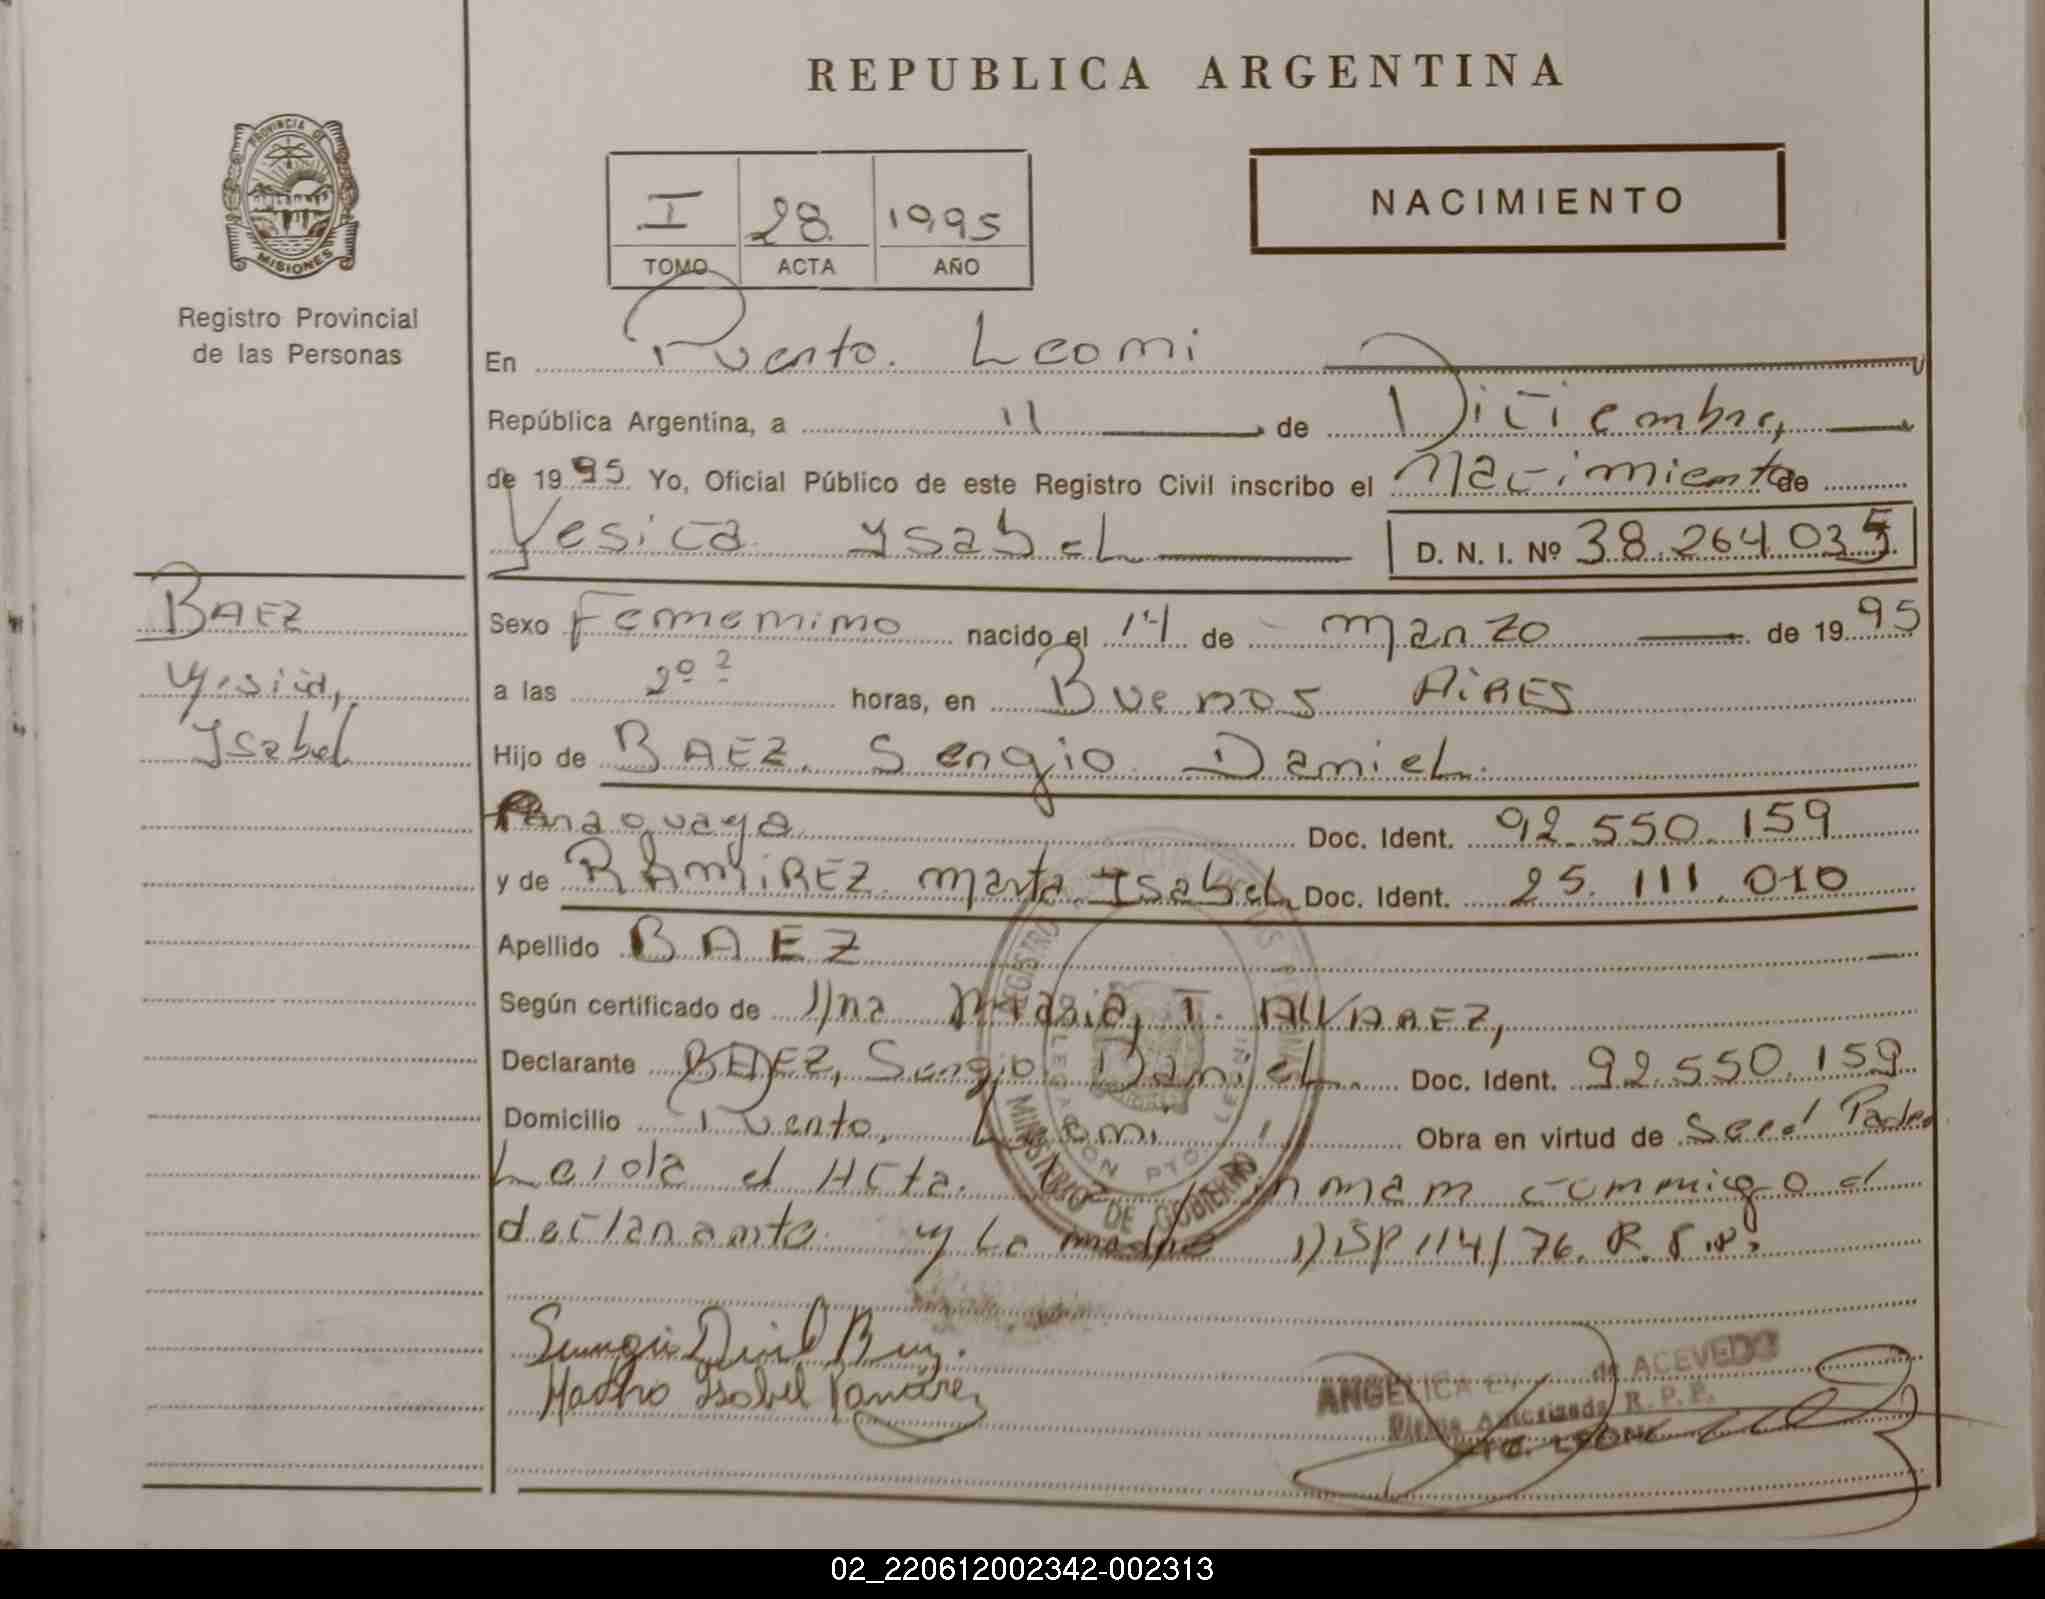 REPUBLICA ARGENTINA
PROVINCIA DE
MISIONES
Registro Provincial
de las Personas
I 28 1995
TOMO ACTA AÑO
NACIMIENTO
En Puerto. Leoni
República Argentina, a 11 de Diciembre,
de 1995 Yo, Oficial Público de este Registro Civil inscribo el Nacimiento de
Yesica Ysabel D. N. I. Nº 38.264.035
BAEZ
Yesica,
Ysabel
Sexo Femenino nacido el 14 de Marzo de 1995
a las horas, en Buenos AiRES
Hijo de BAEZ. Sergio Daniel.
Paraguaya Doc. Ident. 92.550.159
y de RAMiREZ Marta Ysabel Doc. Ident. 25.111.010
Apellido BAEZ
Según certificado de Maria, T. ALVAREZ,
Declarante BAEZ, Sergio Daniel Doc. Ident. 92.550.159
Domicilio Puerto, Leoni Obra en virtud de Ser el Padre
Leida el Acta. La firman conmigo el
declarante y La madre DSP 114/76. R.P.P.
MINISTERIO DE GOBIERNO
DELEGACION PTO. LEONI
Martha Isabel Ramirez
ANGELICA de ACEVEDO
Firma Autorizada R.P.P.
PTO. LEONI
02_220612002342-002313